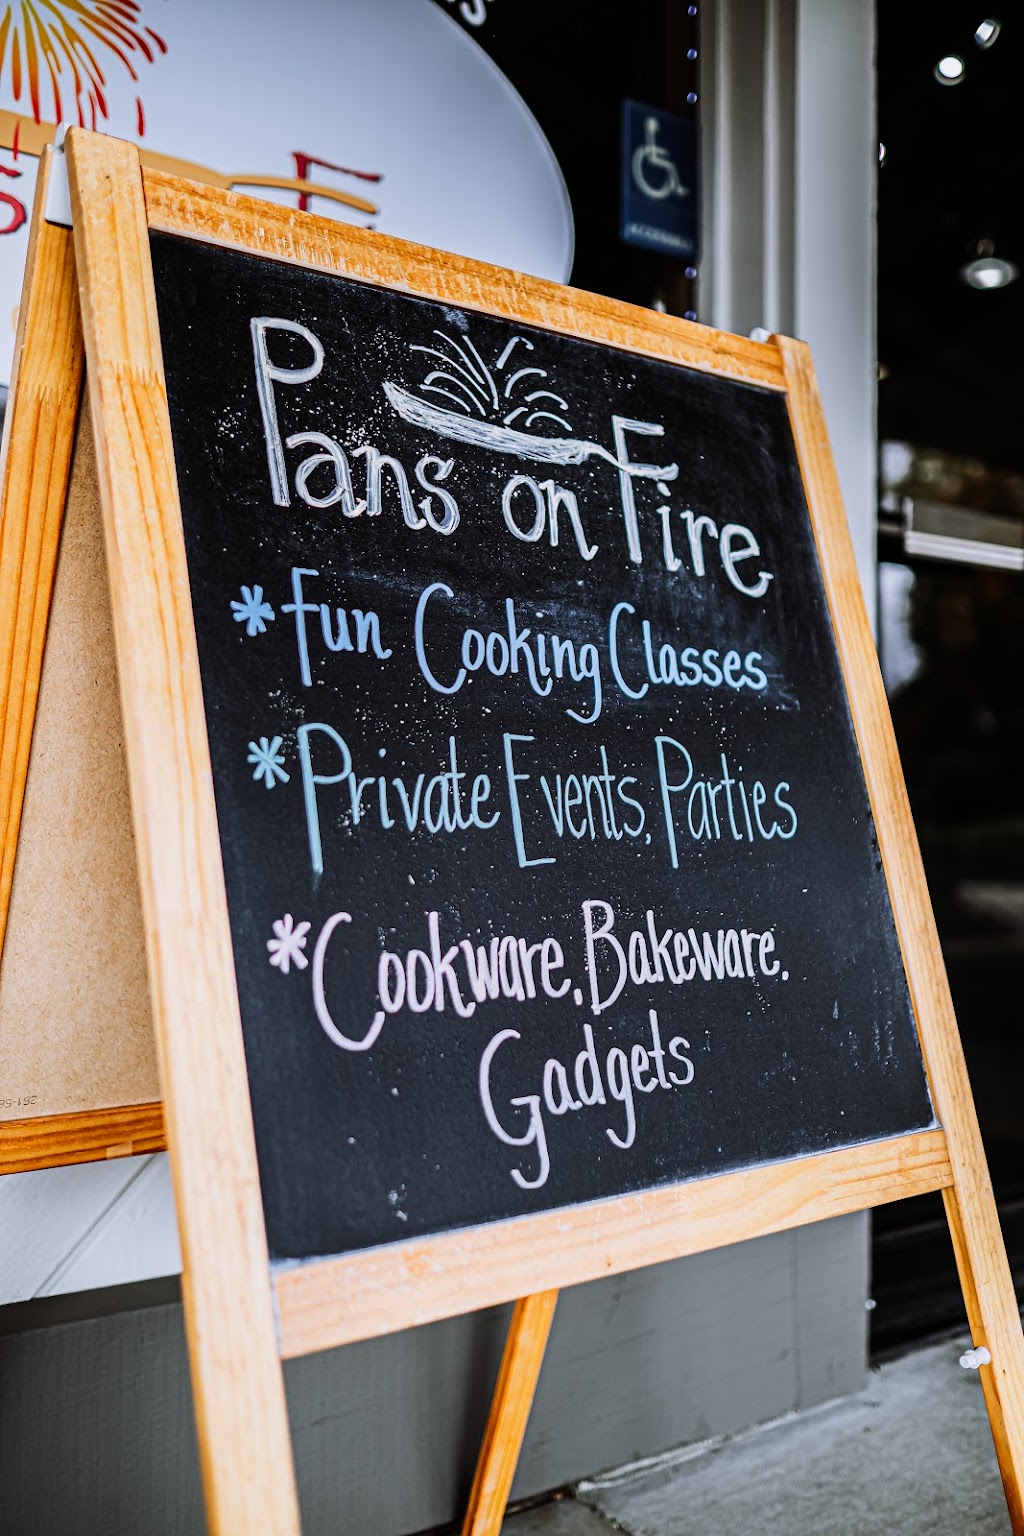 Pans on Fire
*Fun Cooking Classes
*Private Events, Parties
*Cookware, Bakeware,
Gadgets